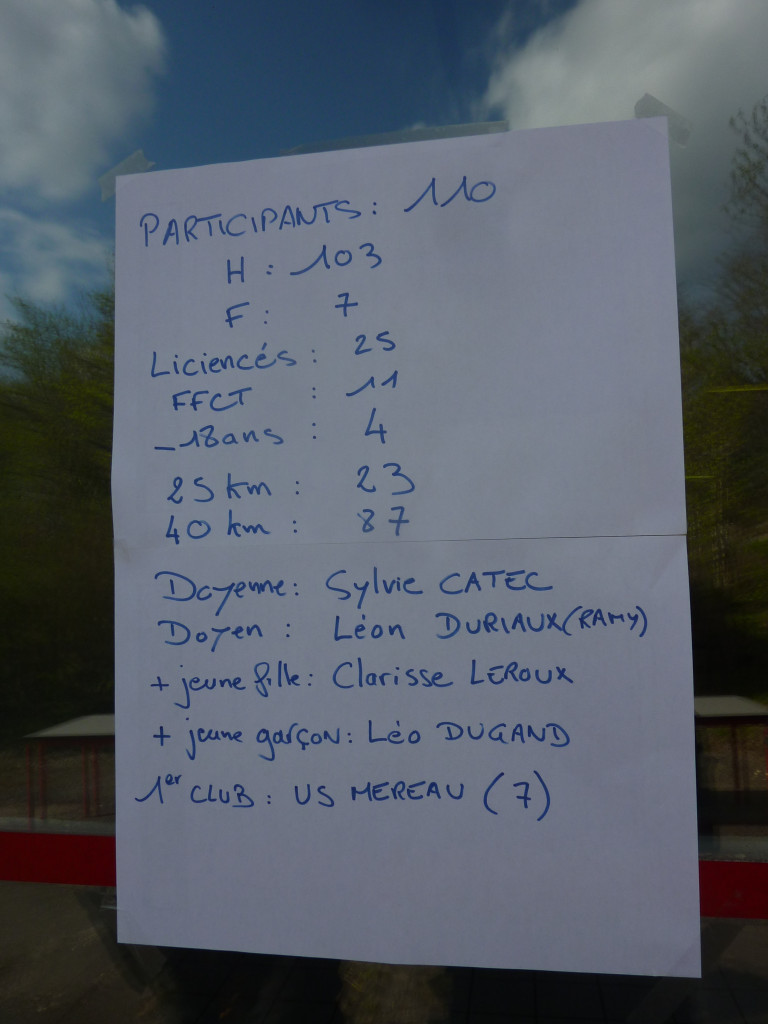 PARTICIPANTS : 110
H : 103
F : 7
Liciencés : 25
FFCT : 11
-18ans : 4
25 km : 23
40 km : 87
Doyenne : Sylvie CATEC
Doyen : Léon DURIAUX (RAMY)
+ jeune fille : Clarisse LEROUX
+ jeune garçon : Léo DUGAND
1er CLUB : US MEREAU (7)